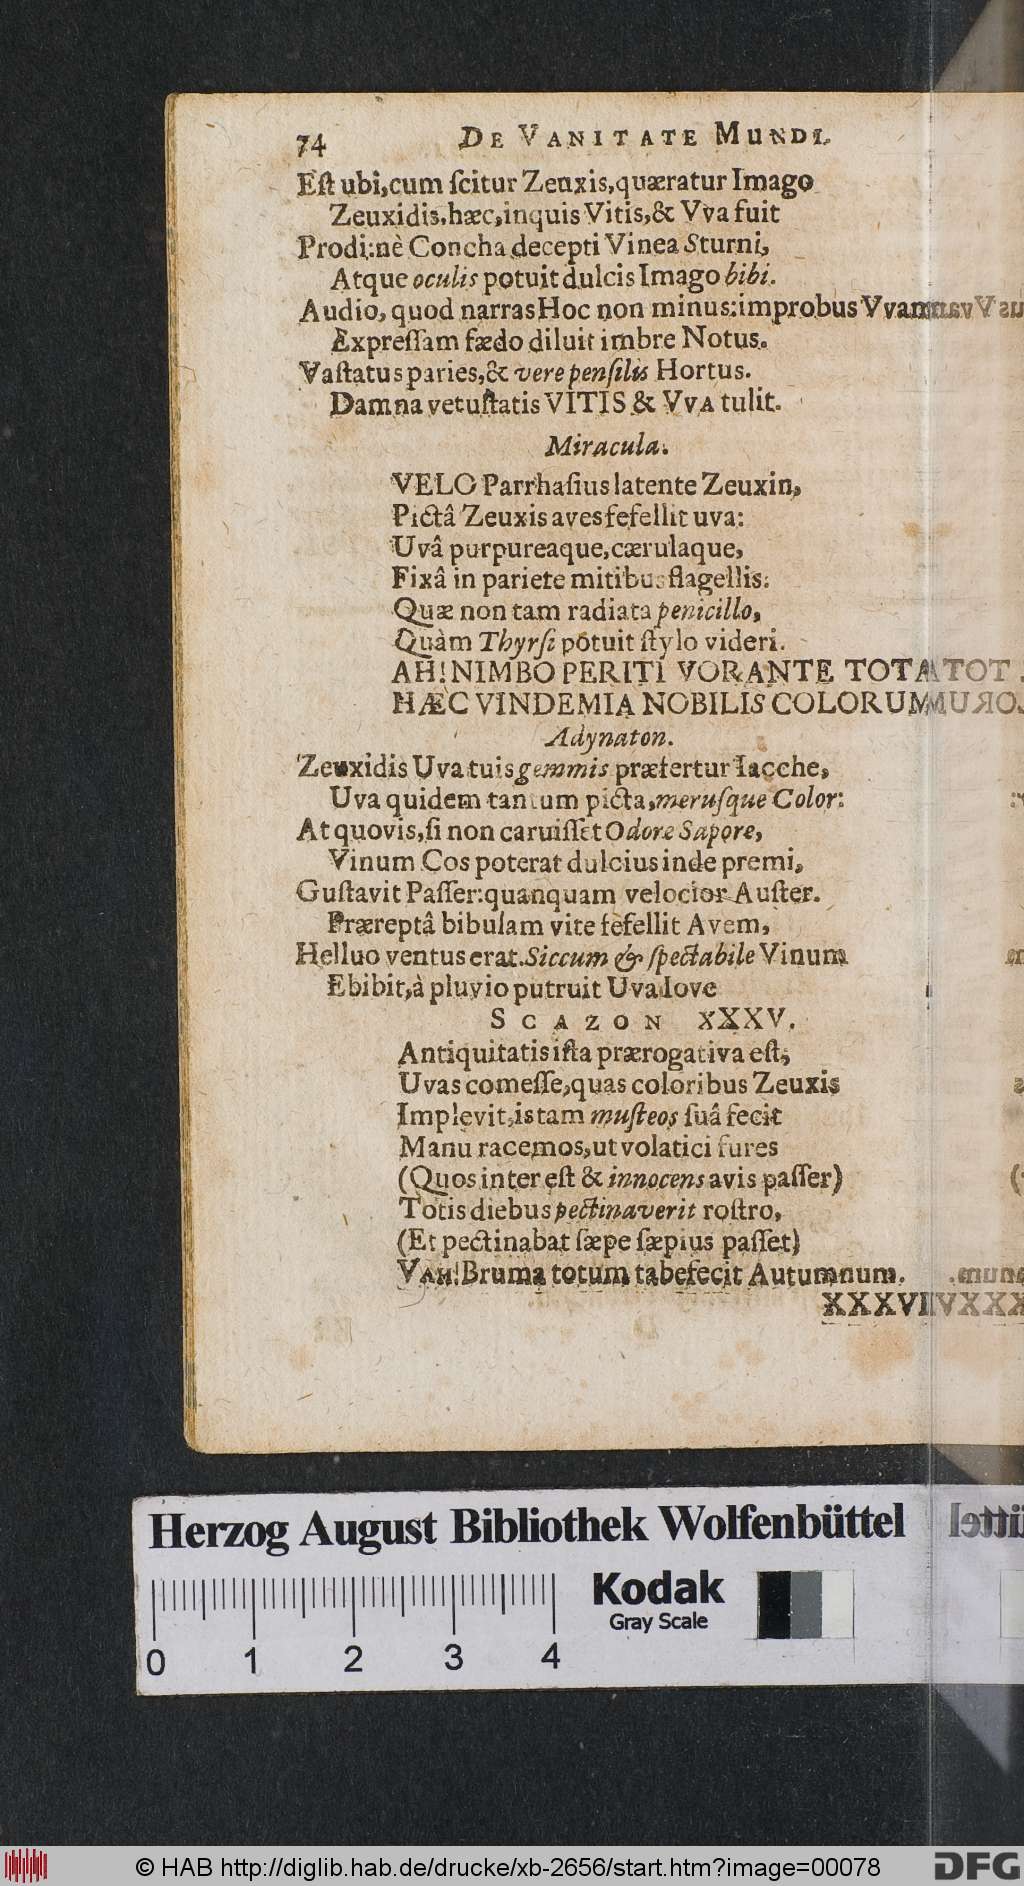 74 DE VANITATE MUNDI.
Eſt ubi,cum ſcitur Zeuxis,quæratur Imago
Zeuxidis.hæc,inquis Vitis,& Vva fuit
Prodi:nè Concha decepti Vinea Sturni,
Atque oculis potuit dulcis Imago bibi.
Audio, quod narras Hoc non minus:improbus Vvam
Expreſſam fædo diluit imbre Notus.
Vaſtatus paries,& vere penſilis Hortus.
Damna vetuſtatis VITIS & VVA tulit.
Miracula.
VELO Parrhaſius latente Zeuxin,
Pictâ Zeuxis aves fefellit uva:
Uvâ purpureaque,cærulaque,
Fixâ in pariete mitibus flagellis.
Quæ non tam radiata penicillo,
Quàm Thyrſi potuit ſtylo videri.
AH! NIMBO PERITI VORANTE TOTA
HÆC VINDEMIA NOBILIS COLORUM
Adynaton.
Zeuxidis Uva tuis gemmis præfertur Iacche,
Uva quidem tantum picta,meruſque Color:
At quovis,ſi non caruiſſet Odore Sapore,
Vinum Cos poterat dulcius inde premi,
Guſtavit Paſſer:quanquam velocior Auſter.
Præreptâ bibulam vite fefellit Avem,
Helluo ventus erat.Siccum & ſpectabile Vinum
Ebibit,à pluvio putruit Uva Iove
SCAZON XXXV.
Antiquitatis iſta prærogativa eſt;
Uvas comeſſe,quas coloribus Zeuxis
Implevit,is tam muſteos ſuâ fecit
Manu racemos,ut volatici fures
(Quos inter eſt & innocens avis paſſer)
Totis diebus pectinaverit roſtro,
(Et pectinabat ſæpe ſæpius paſſet)
VAH!Bruma totum tabefecit Autumnum.
XXXVI
Herzog August Bibliothek Wolfenbüttel
Kodak
Gray Scale
0 1 2 3 4
© HAB http://diglib.hab.de/drucke/xb-2656/start.htm?image=00078
DFG